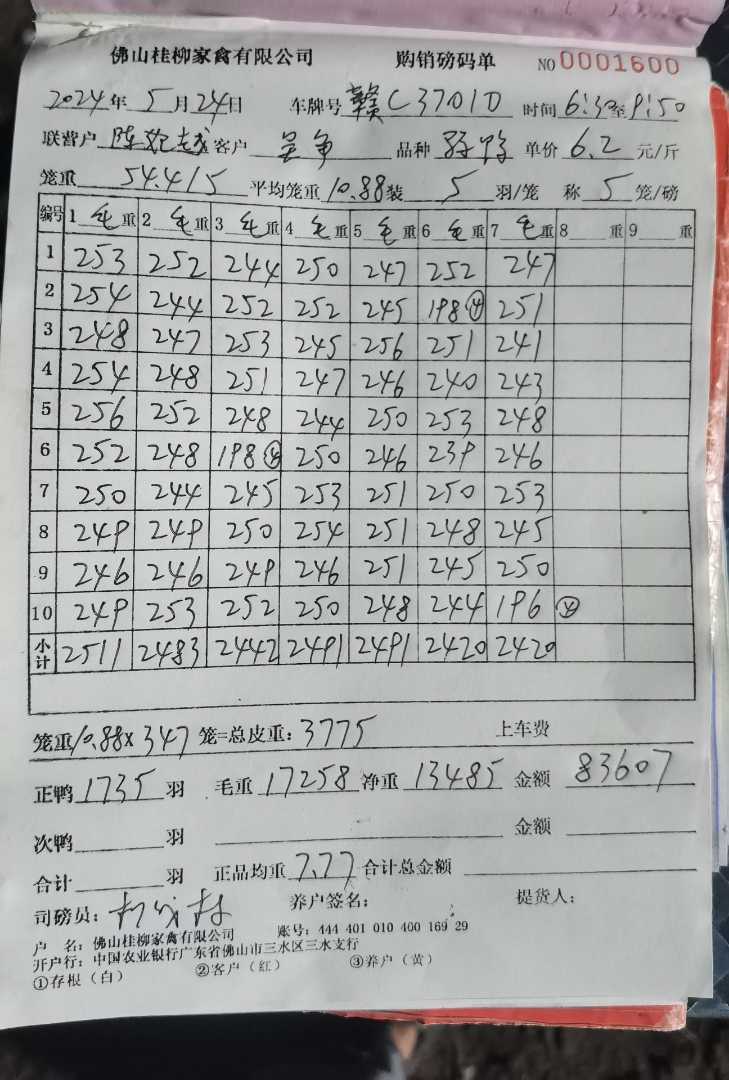 佛山桂柳家禽有限公司 购销磅码单 NO 0001600
2024年 5月24日 车牌号 赣C3701D 时间 6:30至9:50
联营户 陈 客户 吴争 品种 单价 6.2 元/斤
笼重 54.415 平均笼重 10.88 装 5 羽/笼 称 5 笼/磅
编号 1 毛 重 2 毛 重 3 毛 重 4 毛 重 5 毛 重 6 毛 重 7 毛 重 8 重 9 重
1 253 252 244 250 247 252 247
2 254 244 252 252 245 198④ 251
3 248 247 253 245 256 251 241
4 254 248 251 247 246 240 243
5 256 252 248 244 250 253 248
6 252 248 198④ 250 246 239 246
7 250 244 245 253 251 250 253
8 249 249 250 254 251 248 245
9 246 246 249 246 251 245 250
10 249 253 252 250 248 244 196 ④
小计 2511 2483 2442 2491 2491 2420 2420
笼重10.88×347笼=总皮重:3775 上车费
正鸭 1735 羽 毛重 17258 净重 13485 金额 83607
次鸭 羽 金额
合计 羽 正品均重 7.77 合计总金额
司磅员: 养户签名: 提货人:
户 名:佛山桂柳家禽有限公司 账号:444 401 010 400 169 29
开户行:中国农业银行广东省佛山市三水区三水支行
①存根(白) ②客户(红) ③养户(黄)